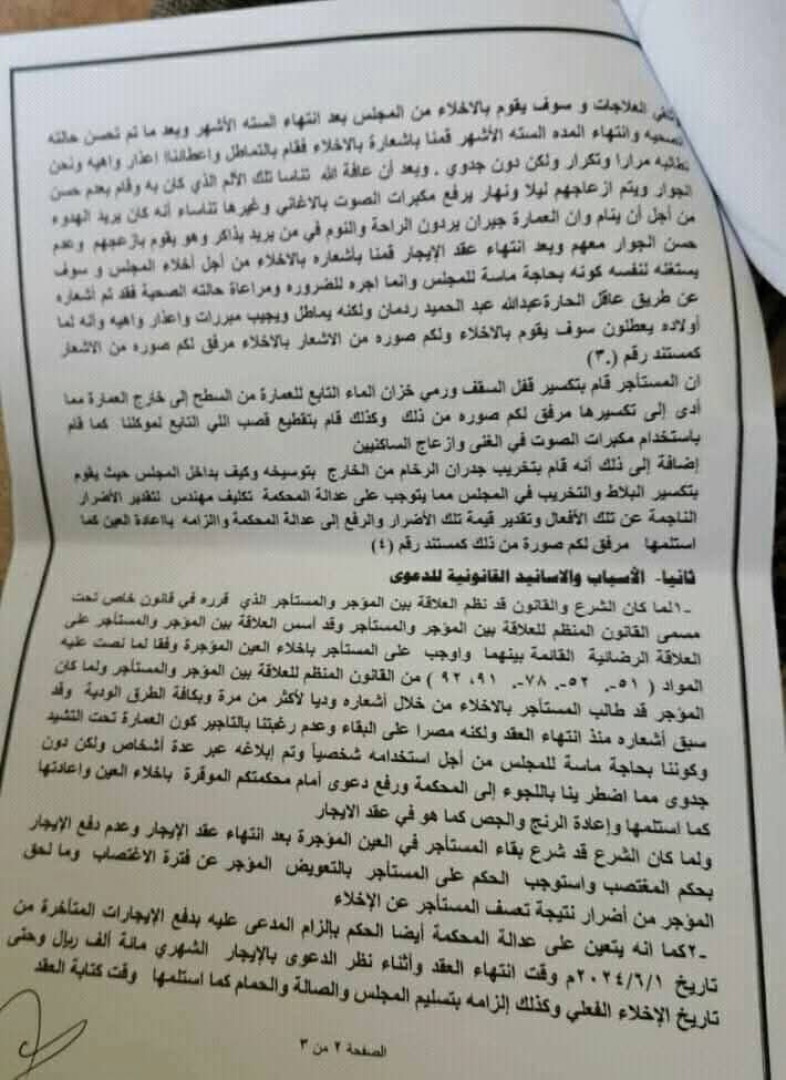 العلاجات و سوف يقوم بالاخلاء من المجلس بعد انتهاء السته الأشهر وبعد ما تم تحسن حالته
الصحيه وانتهاء المده السته الأشهر قمنا باشعارة بالاخلاء فقام بالتماطل واعطاننا اعذار واهيه ونحن
نطالبه مرارا وتكرار ولكن دون جدوي . وبعد أن عافة الله تناسا تلك الألم الذي كان به وقام بعدم حسن
الجوار ويتم ازعاجهم ليلا ونهار برفع مكبرات الصوت بالاغاني وغيرها تناساء أنه كان يريد الهدوء
من أجل أن ينام وان العمارة جيران يردون الراحة والنوم في من يريد يذاكر وهو يقوم بازعجهم وعدم
حسن الجوار معهم وبعد انتهاء عقد الإيجار قمنا بأشعاره بالاخلاء من أجل أخلاء المجلس و سوف
يستغله لنفسه كونه بحاجة ماسة للمجلس وانما اجره للضروره ومراعاة حالته الصحية فقد تم أشعاره
عن طريق عاقل الحارةعبدالله عبد الحميد ردمان ولكنه يماطل ويجيب مبررات واعذار واهيه وانه لما
أولاده يعطلون سوف يقوم بالاخلاء ولكم صوره من الاشعار بالاخلاء مرفق لكم صوره من الاشعار
كمستند رقم (٣.)
ان المستأجر قام بتكسير قفل السقف ورمي خزان الماء التابع للعمارة من السطح إلى خارج العمارة مما
أدى إلى تكسيرها مرفق لكم صوره من ذلك وكذلك قام بتقطيع قصب اللي التابع لموكلنا كما قام
باستخدام مكبرات الصوت في الغنى وازعاج الساكنيين
إضافة إلى ذلك أنه قام بتخريب جدران الرخام من الخارج بتوسيخه وكيف بداخل المجلس حيث يقوم
بتكسير البلاط والتخريب في المجلس مما يتوجب على عدالة المحكمة تكليف مهندس لتقدير الأضرار
الناجمة عن تلك الأفعال وتقدير قيمة تلك الأضرار والرفع إلى عدالة المحكمة والزامه بااعادة العين كما
استلمها مرفق لكم صورة من ذلك كمستند رقم (٤)
ثانيا- الأسباب والاسانيد القانونية للدعوى
١- لما كان الشرع والقانون قد نظم العلاقة بين المؤجر والمستأجر الذي قرره في قانون خاص تحت
مسمى القانون المنظم للعلاقة بين المؤجر والمستأجر وقد أسس العلاقة بين المؤجر والمستأجر على
العلاقة الرضائية القائمة بينهما واوجب على المستأجر باخلاء العين المؤجرة وفقا لما نصت عليه
المواد ( ٥١-. ٥٢-. ٧٨-. ٩١، ٩٢ ) من القانون المنظم للعلاقة بين المؤجر والمستأجر ولما كان
المؤجر قد طالب المستأجر بالاخلاء من خلال أشعاره وديا لأكثر من مرة وبكافة الطرق الودية وقد
سبق أشعاره منذ انتهاء العقد ولكنه مصرا على البقاء وعدم رغبتنا بالتاجير كون العمارة تحت التشيد
وكوننا بحاجة ماسة للمجلس من أجل استخدامه شخصياً وتم إبلاغه عبر عدة أشخاص ولكن دون
جدوى مما اضطر ينا باللجوء إلى المحكمة ورفع دعوى أمام محكمتكم الموقرة باخلاء العين واعادتها
كما استلمها وإعادة الرنج والجص كما هو في عقد الايجار
ولما كان الشرع قد شرع بقاء المستأجر في العين المؤجرة بعد انتهاء عقد الإيجار وعدم دفع الإيجار
بحكم المغتصب واستوجب الحكم على المستأجر بالتعويض المؤجر عن فترة الاغتصاب وما لحق
المؤجر من أضرار نتيجة تعسف المستأجر عن الإخلاء
٢- كما انه يتعين على عدالة المحكمة أيضا الحكم بإلزام المدعى عليه بدفع الإيجارات المتأخرة من
تاريخ ٢٠٢٤/٦/١م وقت انتهاء العقد وأثناء نظر الدعوى بالإيجار الشهري مائة ألف ريال وحتى
تاريخ الإخلاء الفعلي وكذلك إلزامه بتسليم المجلس والصالة والحمام كما استلمها وقت كتابة العقد
الصفحة ٢ من ٣